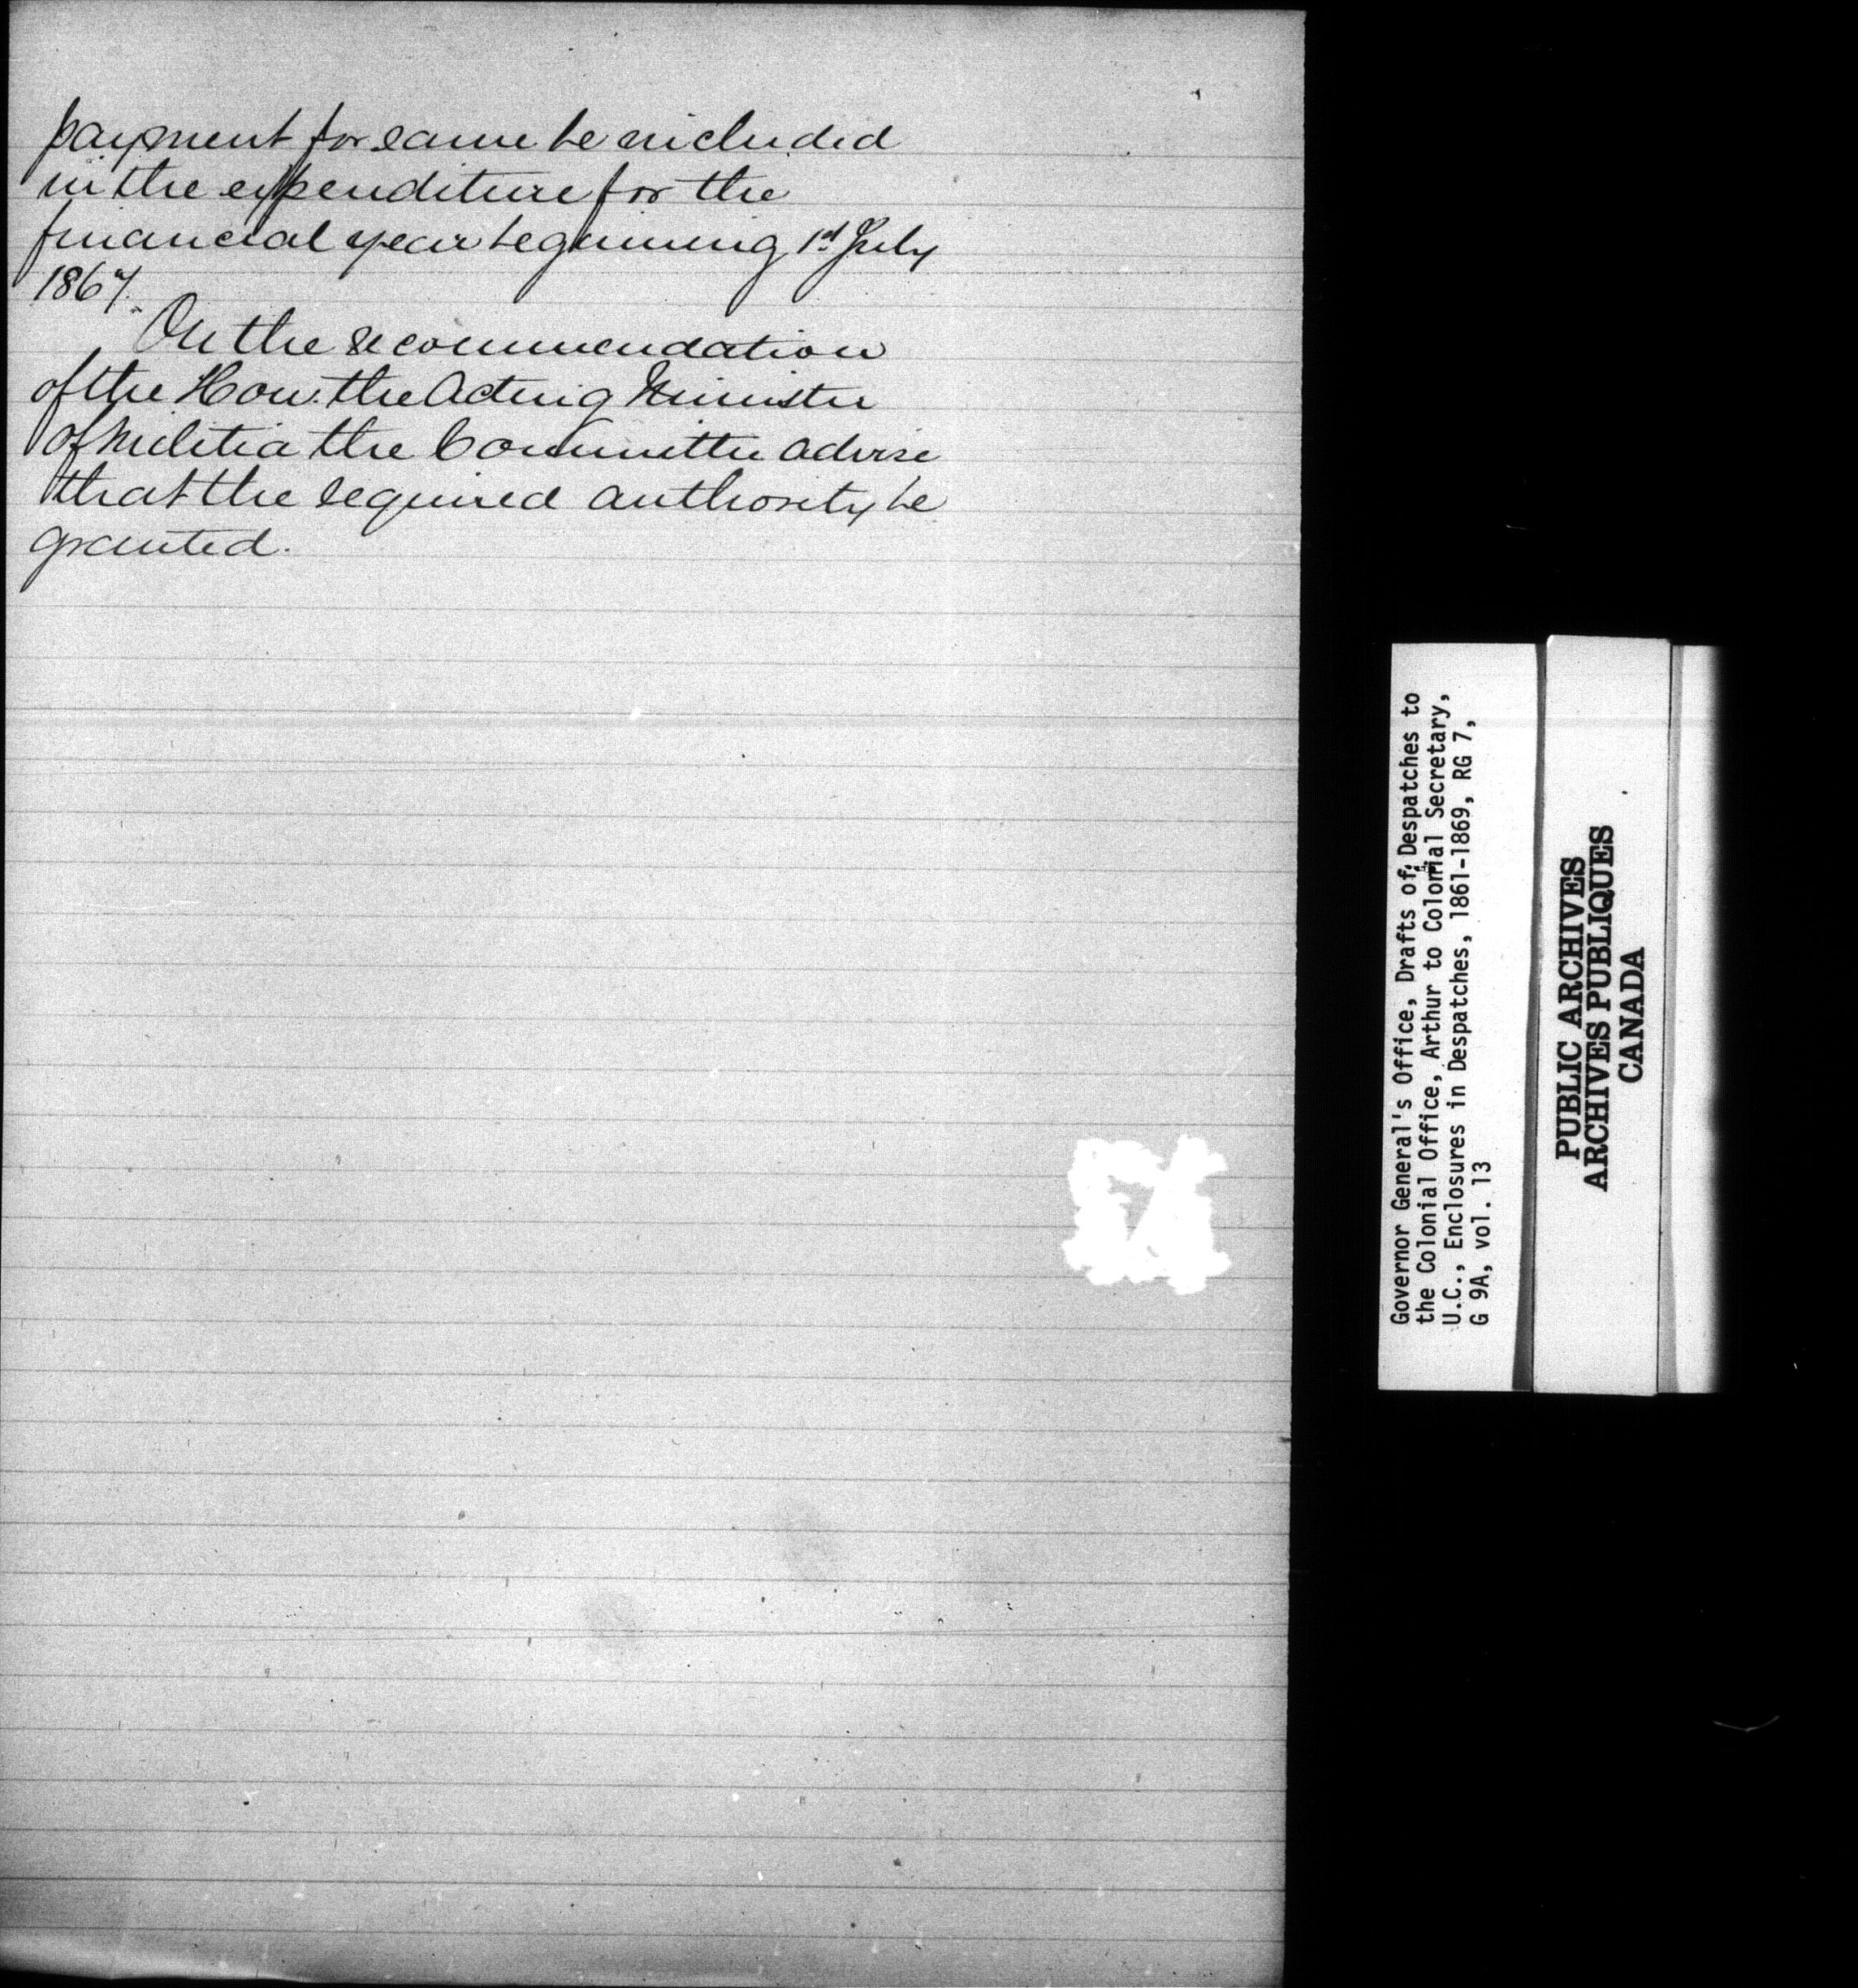 payment for same be included
in the expenditure for the
financial year beginning 1st July
1867.
On the recommendation
of the Hon. the Acting Minister
of Militia the Committee advise
that the required authority be
granted.
Governor General's Office, Drafts of Despatches to
the Colonial Office, Arthur to Colonial Secretary,
U.C., Enclosures in Despatches, 1861-1869, RG 7,
G 9A, vol. 13
PUBLIC ARCHIVES
ARCHIVES PUBLIQUES
CANADA